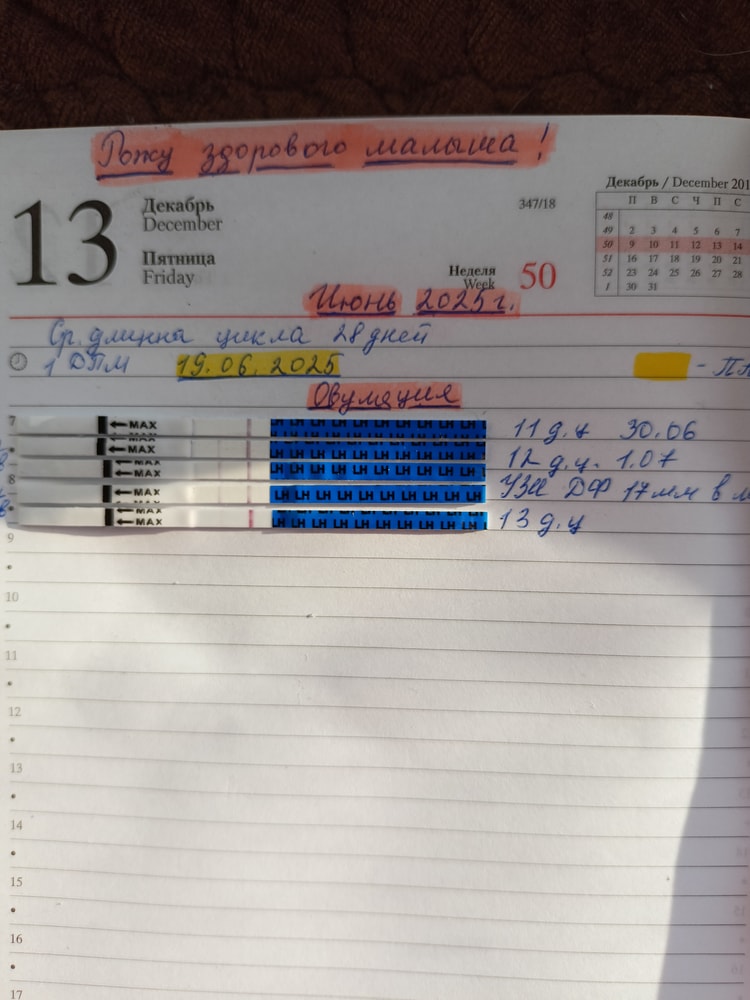 Рожу здорового малыша!
13
Декабрь
December
Пятница
Friday
347/18
Неделя
Week
50
Декабрь / December 201
П В С Ч П С
48
49 2 3 4 5 6 7
50 9 10 11 12 13 14
51 16 17 18 19 20 21
52 23 24 25 26 27 28
1 30 31
Июнь 2025г.
Ср. длинна цикла 28 дней
1 ДПМ 19.06.2025
- П
Овуляция
7
←MAX LH LH LH LH LH LH LH LH LH LH 11 д.ц 30.06
←MAX LH LH LH LH LH LH LH LH LH LH 12 д.ц. 1.07
←MAX LH LH LH LH LH LH LH LH LH LH
8
←MAX LH LH LH LH LH LH LH LH LH LH УЗИ ДФ 17мм в
←MAX LH LH LH LH LH LH LH LH LH LH 13 д.ц
9
10
11
12
13
14
15
16
17